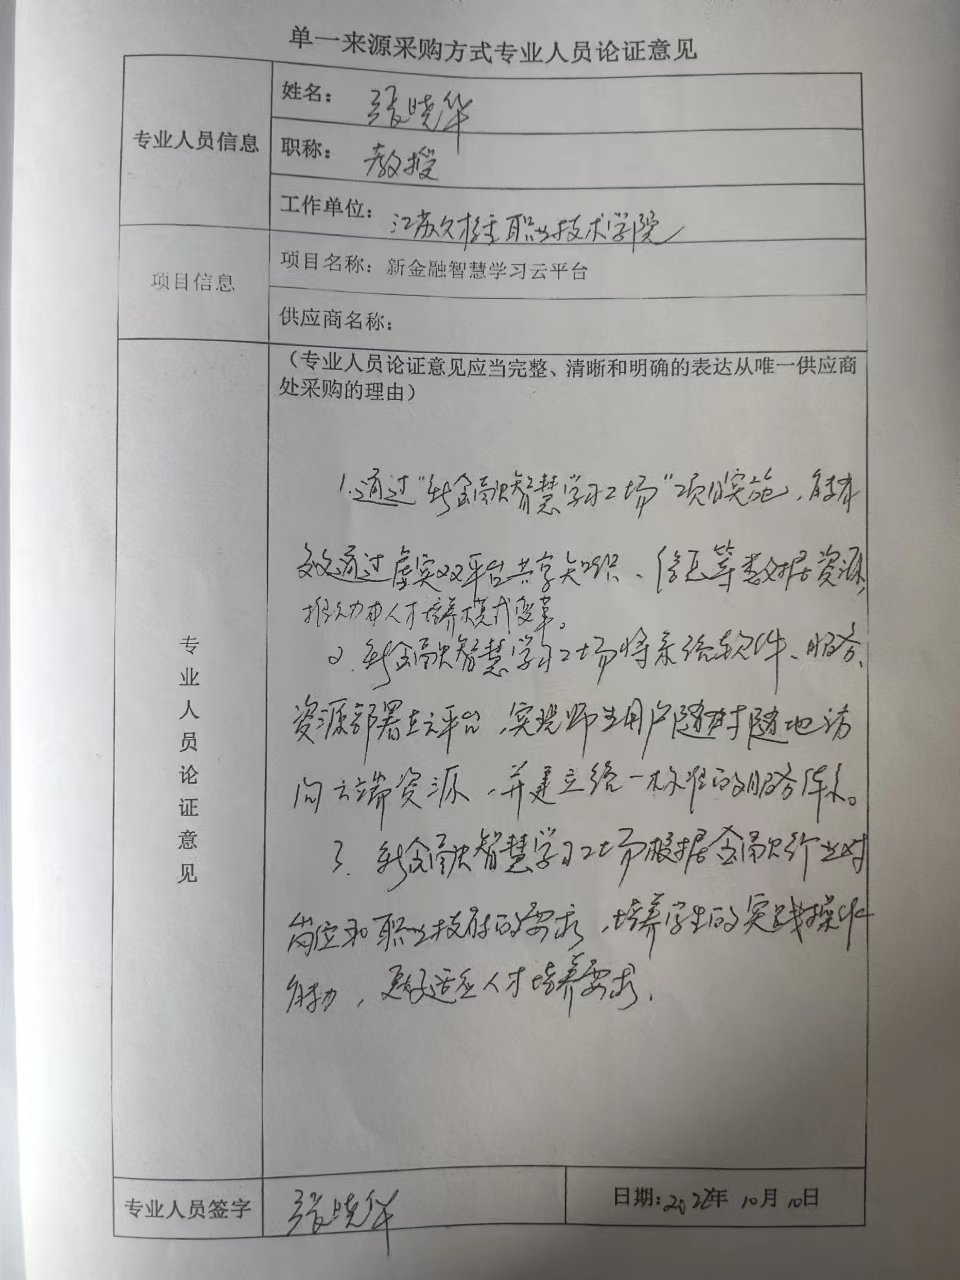 单一来源采购方式专业人员论证意见
专业人员信息
姓名： 张晓华
职称： 教授
工作单位： 江苏 职业技术学院
项目信息
项目名称：新金融智慧学习云平台
供应商名称：
专业人员论证意见
（专业人员论证意见应当完整、清晰和明确的表达从唯一供应商
处采购的理由）
1.通过“新金融智慧学习工场”项目实施，能有
效通过虚实双平台共享知识、信息等数据资源，
推动 人才培养模式变革。
2.新金融智慧学习工场将系统软件、服务、
资源部署在云平台，实现师生用户随时随地访
问云端资源，并建立统一标准的服务体系。
3.新金融智慧学习工场根据金融行业对
岗位和职业技能的要求，培养学生的实践操作
能力，更好适应人才培养要求。
专业人员签字
张晓华
日期：2022年 10月 10日